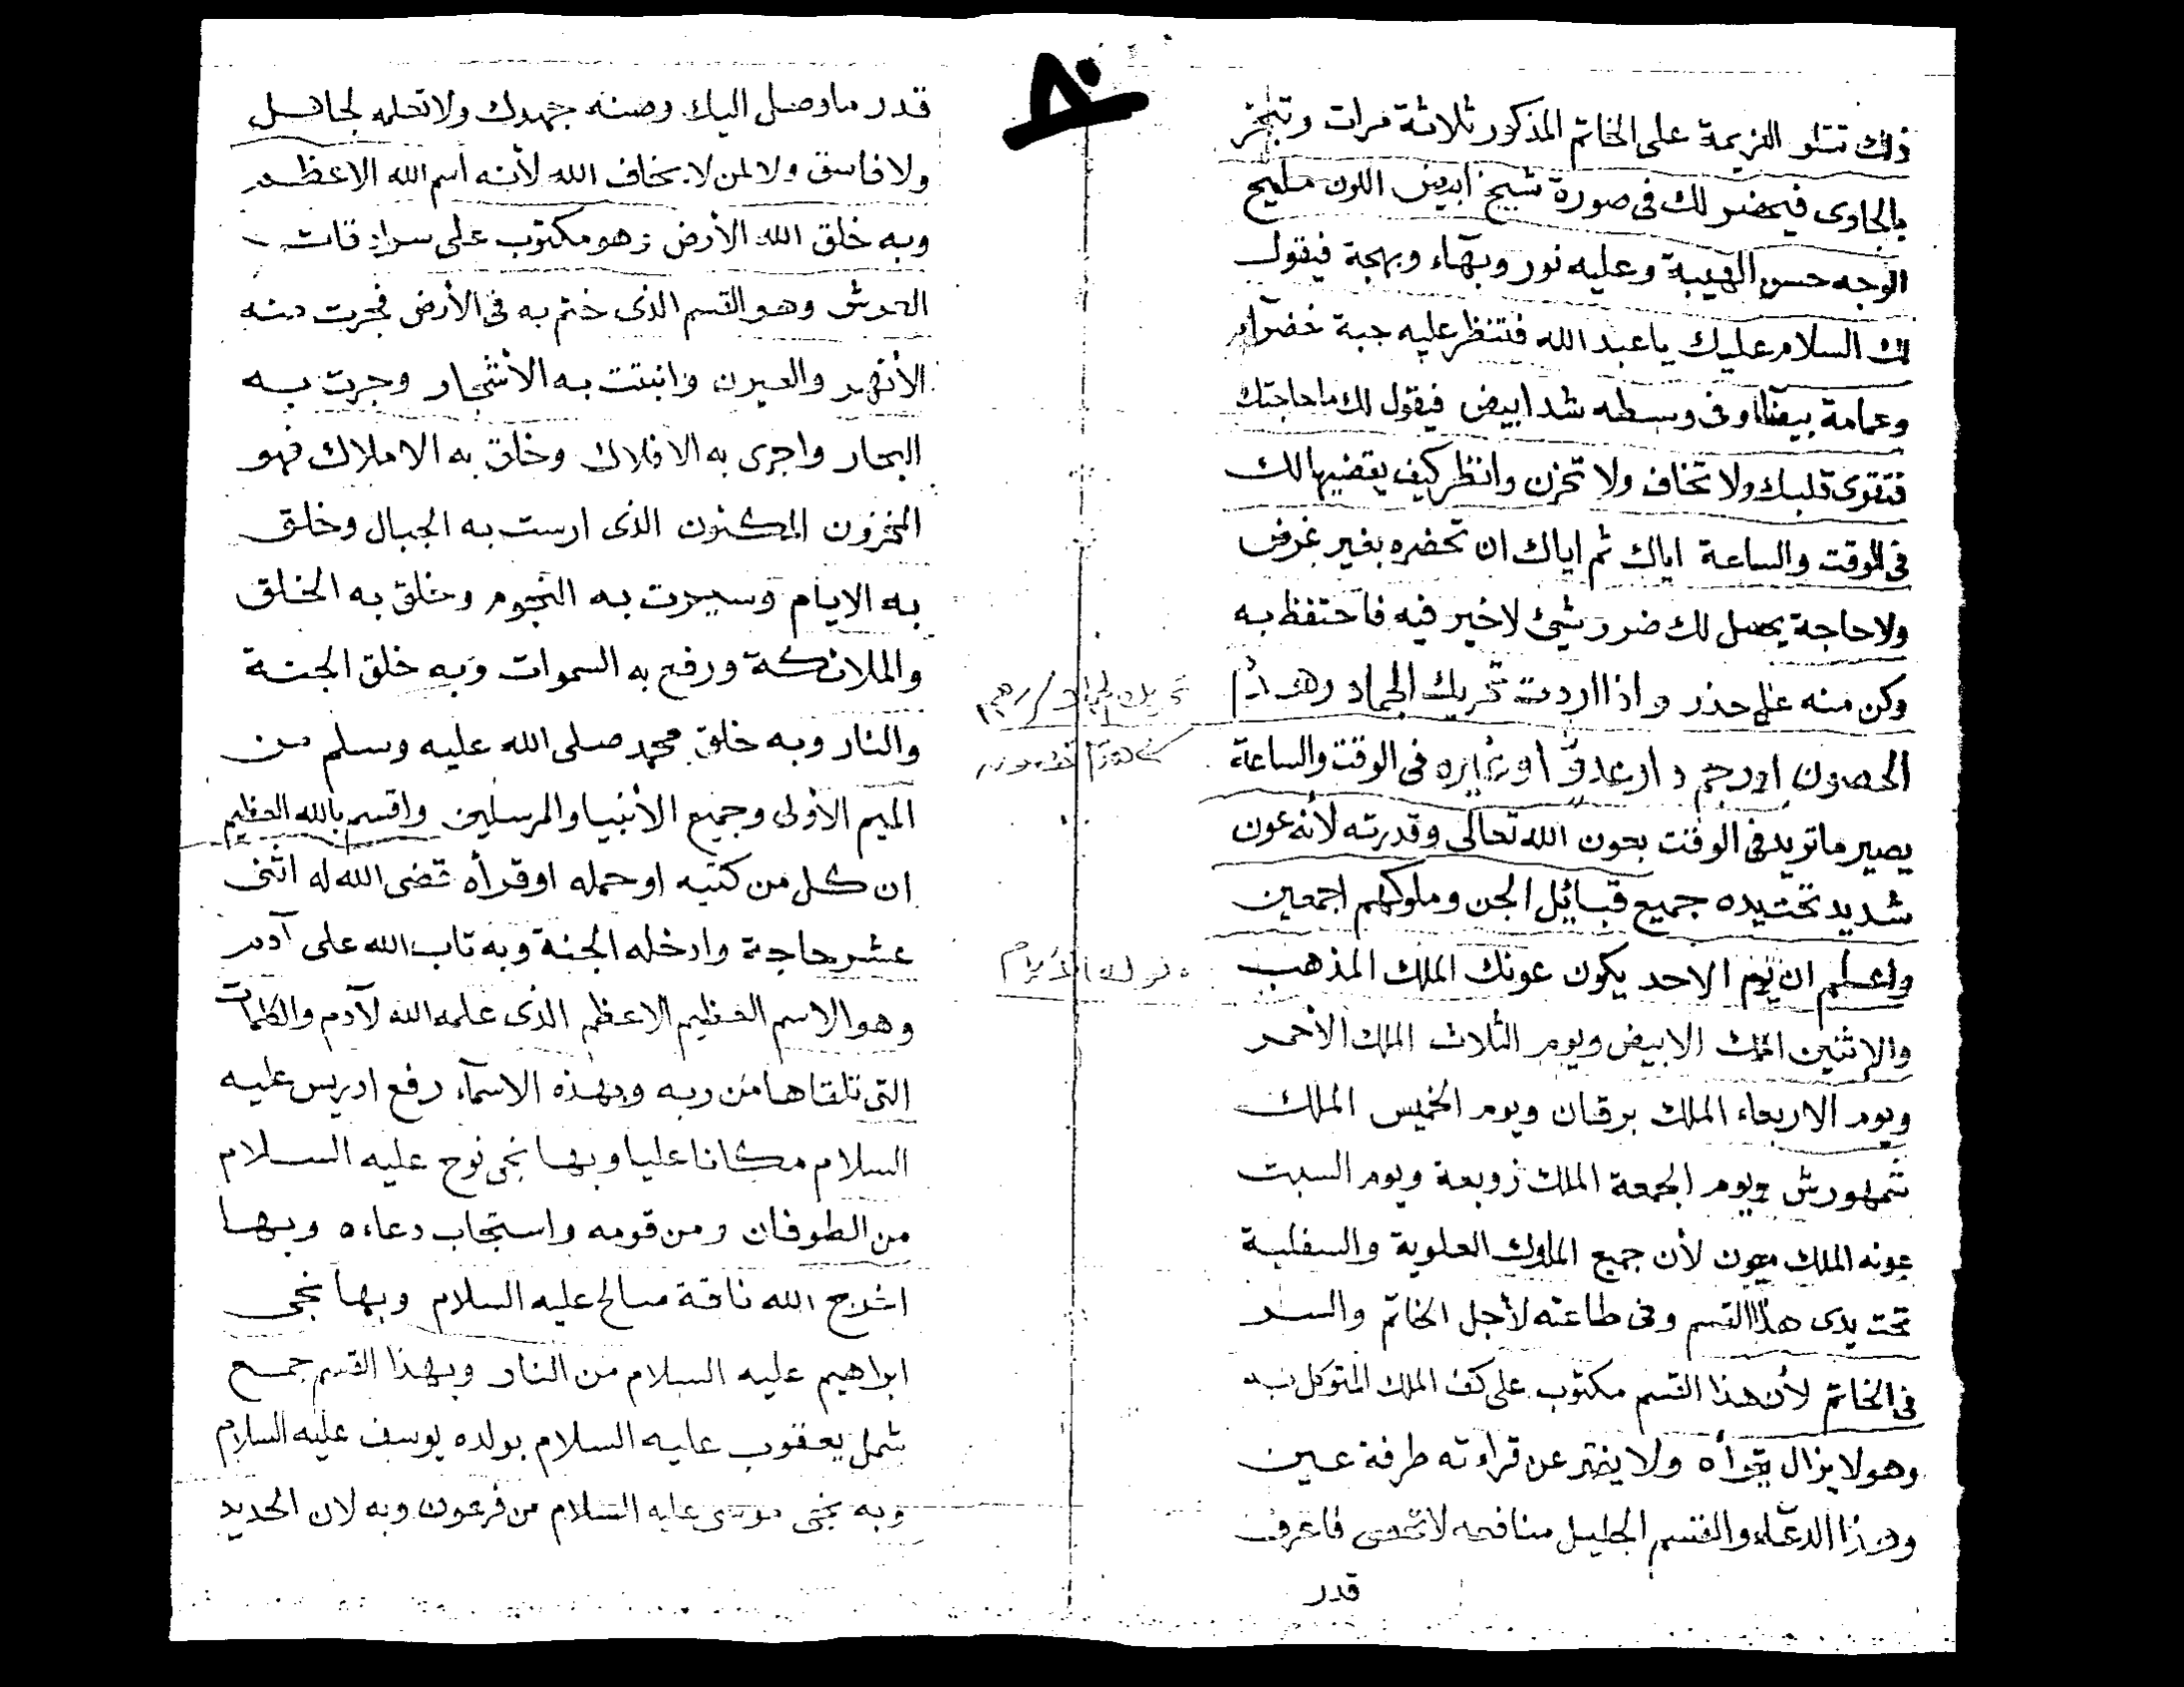 ذلك تتلو العزيمة على الخاتم المذكور ثلاثة مرات وتبخر
بالجاوى فيحضر لك فى صورة شيخ ابيض اللون مليح
الوجه حسن الهيبة وعليه نور وبهاء وبهجة فيقول
لك السلام عليك يا عبد الله فتنظر عليه جبة خضراء
وعمامة بيضاا وفى وسطه شد ابيض فيقول لك ما حاجتك
فتقوى قلبك ولا تخاف ولا تحزن وانظر كيف يقضيها لك
فى الوقت والساعة اياك ثم اياك ان تحضره بغير غرض
ولا حاجة يحصل لك ضرر شئ لا خير فيه فاحتفظ به
وكن منه على حذر واذا اردت تحريك الجماد وهدم
الحصون او رجم دار عدو او غيره فى الوقت والساعة
يصير ما تريد فى الوقت بعون الله تعالى وقدرته لأنه عون
شديد تحت يده جميع قبائل الجن وملوكهم اجمعين
واعلم ان يوم الاحد يكون عونك الملك المذهب
والاثنين الملك الابيض ويوم الثلاث الملك الأحمر
ويوم الاربعاء الملك برقان ويوم الخميس الملك
شمهورش ويوم الجمعة الملك زوبعة ويوم السبت
عونه الملك ميمون لأن جميع الملوك العلوية والسفلية
تحت يدى هذا القسم وفى طاعته لأجل الخاتم والسر
فى الخاتم لأن هذا القسم مكتوب على كف الملك المتوكل به
وهو لا يزال يقرأه ولا يفتر عن قراءته طرفة عين
وهذا الدعاء والقسم الجليل منافعه لا تحصى فاعرف
قدر
٨٠
قدر ما وصل اليك وصنه جهدك ولا تعلمه لجاهل
ولا فاسق ولا لمن لا يخاف الله لأنه اسم الله الاعظم
وبه خلق الله الأرض وهو مكتوب على سرادقات
العرش وهو القسم الذى ختم به فى الأرض فجرت منه
الأنهر والعيون وانبتت به الأشجار وجرت به
البحار واجرى به الافلاك وخلق به الاملاك فهو
المخزون المكنون الذى ارست به الجبال وخلق
به الايام وسيرت به النجوم وخلق به الخلق
والملائكة ورفع به السموات وبه خلق الجنة
والنار وبه خلق محمد صلى الله عليه وسلم من
الميم الأولى وجميع الأنبيا والمرسلين واقسم بالله العظيم
ان كل من كتبه او حمله او قرأه قضى الله له اثنى
عشر حاجة وادخله الجنة وبه تاب الله على آدم
وهو الاسم العظيم الاعظم الذى علمه الله لآدم والكلمات
التى تلقاها من ربه وبهذه الاسماء رفع ادريس عليه
السلام مكانا عليا وبها نجى نوح عليه السلام
من الطوفان ومن قومه واستجاب دعاءه وبها
اخرج الله ناقة صالح عليه السلام وبها نجى
ابراهيم عليه السلام من النار وبهذا القسم جمع
شمل يعقوب عليه السلام بولده يوسف عليه السلام
وبه نجى موسى عليه السلام من فرعون وبه لان الحديد